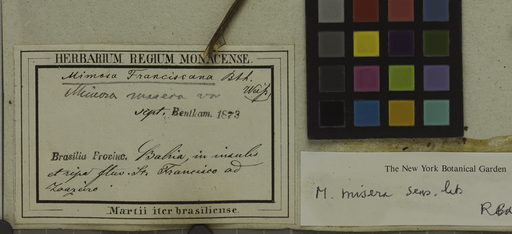 HERBARIUM REGIUM MONACENSE.
Mimosa Franciscana Bth.
Mimosa misera var
sept. Bentham. 1873
Brasilia Provinc. Bahia, in insulis
et ripa fluv. St. Francisco ad
Joazeiro
Martii iter brasiliense.
The New York Botanical Garden
M. misera sens. lat
R Ba